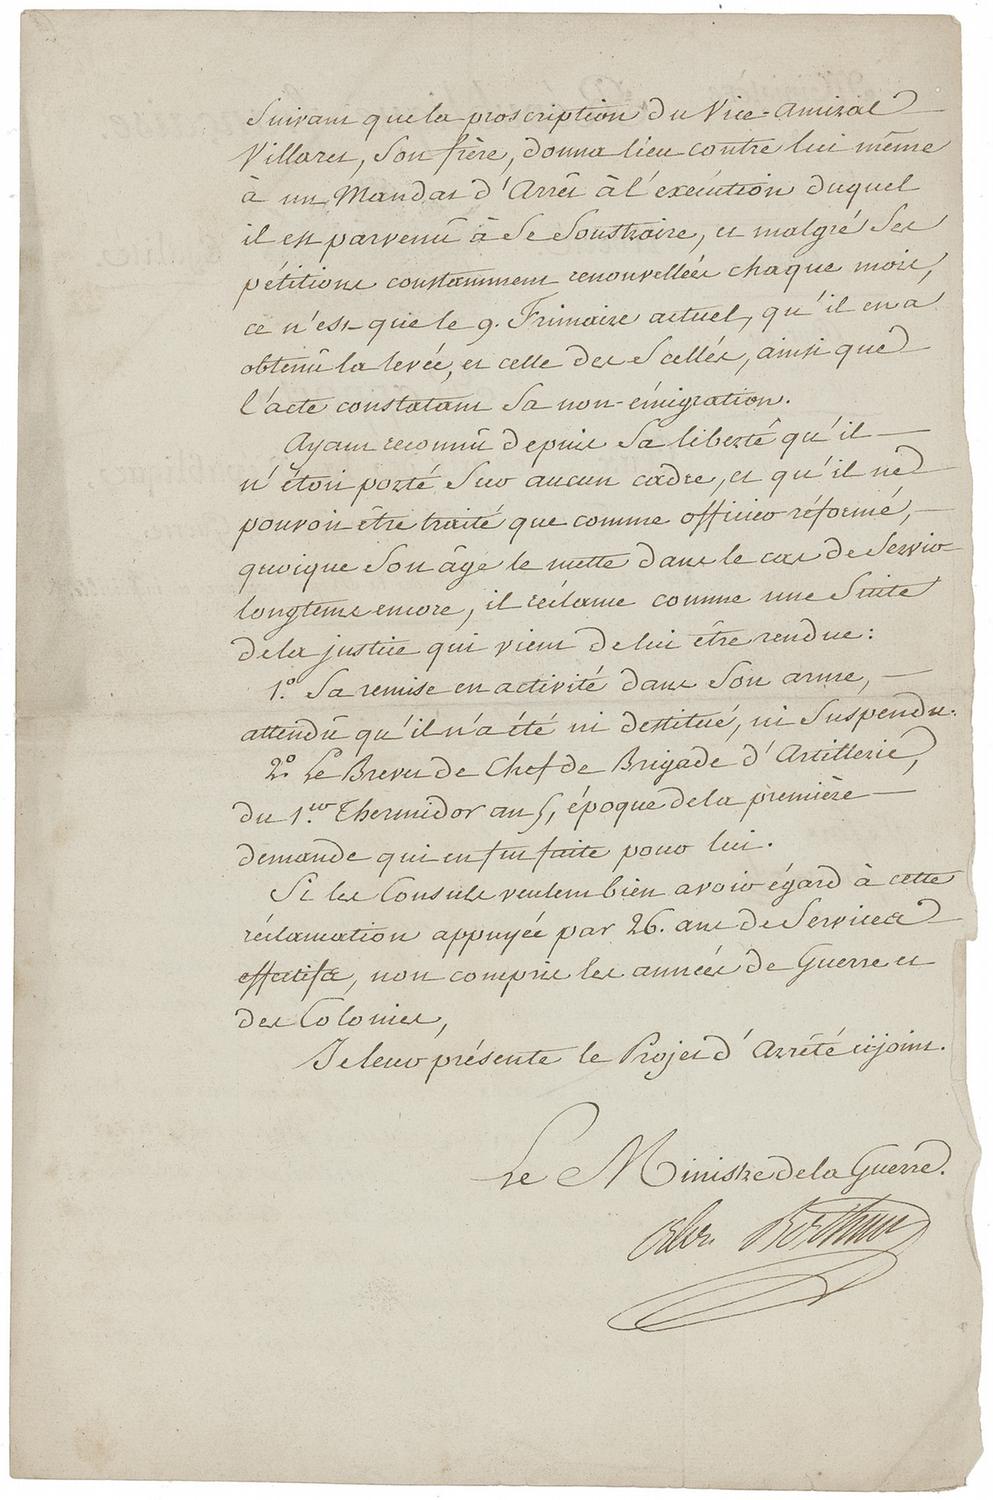 Suivant que la proscription du Vice-Amiral
Villaret, son frère, donna lieu contre lui même
à un Mandat d'Arrêt à l'exécution duquel
il est parvenû à se soustraire, et malgré ses
pétitions constamment renouvellées chaque mois,
ce n'est que le 9. Frimaire actuel, qu'il en a
obtenû la levée, et celle des Scellés, ainsi que
l'acte constatant sa non-émigration.
Ayant reconnû depuis sa liberté qu'il
n'étoit porté sur aucun cadre, et qu'il ne
pouvoit être traité que comme officier réformé,
quoique son âge le mette dans le cas de servir
longtems encore, il réclame comme une suite
de la justice qui vient de lui être rendue:
1.° Sa remise en activité dans son arme,
attendû qu'il n'a été ni destitué, ni suspendu.
2.° Le Brevet de Chef de Brigade d'Artillerie,
du 1.er Thermidor an 5, époque de la première
demande qui en fut faite pour lui.
Si les Consuls veulent bien avoir égard à cette
réclamation appuyée par 26. ans de Services
effectifs, non compris les années de Guerre et
des Colonies,
Je leur présente le Projet d'Arrêté cijoint.
Le Ministre de la Guerre.
Alex. Berthier